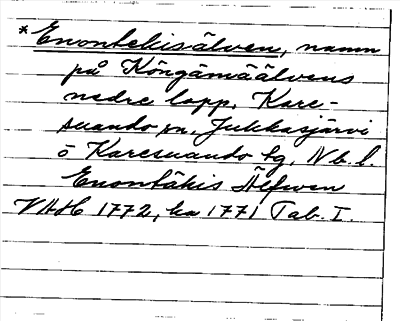 *Enontekisälven, namn
på Köngämäälvens
nedre lopp, Kare-
suando sn, Jukkasjärvi
o Karesuando tg, Nb. l.
Enontäkis Älfwen
VAH 1772, ka 1771 Tab. I.